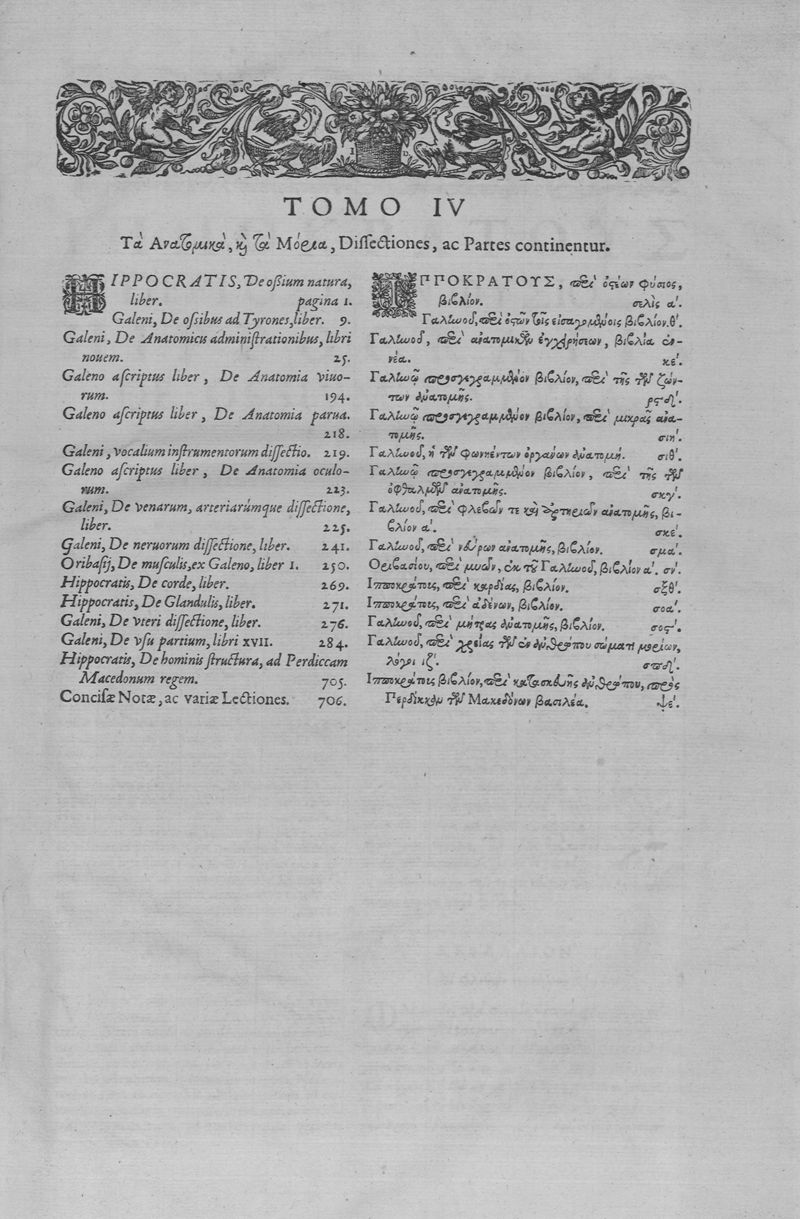 TOMO IV
Τὰ Ανατομικὰ, καὶ τὰ Μόρια, Diſſectiones, ac Partes continentur.
HIPPOCRATIS, De oſsium natura,
liber. pagina 1.
Galeni, De oſsibus ad Tyrones, liber. 9.
Galeni, De Anatomicis adminiſtrationibus, libri
nouem. 25.
Galeno aſcriptus liber, De Anatomia viuo-
rum. 194.
Galeno aſcriptus liber, De Anatomia parua.
218.
Galeni, vocalium inſtrumentorum diſſectio. 219.
Galeno aſcriptus liber, De Anatomia oculo-
rum. 223.
Galeni, De venarum, arteriarúmque diſſectione,
liber. 225.
Galeni, De neruorum diſſectione, liber. 241.
Oribaſij, De muſculis, ex Galeno, liber 1. 250.
Hippocratis, De corde, liber. 269.
Hippocratis, De Glandulis, liber. 271.
Galeni, De vteri diſſectione, liber. 276.
Galeni, De vſu partium, libri XVII. 284.
Hippocratis, De hominis ſtructura, ad Perdiccam
Macedonum regem. 705.
Conciſæ Notæ, ac variæ Lectiones. 706.
ΙΠΠΟΚΡΑΤΟΥΣ, περὶ ὀστέων φύσιος,
βιβλίον. σελὶς α'.
Γαλίωοῦ, περὶ ὀστῶν τοῖς εἰσαγομένοις βιβλίον. θ'.
Γαλίωοῦ, περὶ ἀνατομικῶν ἐγχειρήσεων, βιβλία ἐν-
νέα. κε'.
Γαλίωῷ προσγεγραμμένον βιβλίον, περὶ τῆς τῶν ζών-
των ἀνατομῆς. ρϟδ'.
Γαλίωῷ προσγεγραμμένον βιβλίον, περὶ μικρᾶς ἀνα-
τομῆς. σιη'.
Γαλίωοῦ, ἡ τῶν φωνηέντων ὀργάνων ἀνατομή. σιθ'.
Γαλίωῷ προσγεγραμμένον βιβλίον, περὶ τῆς τῶν
ὀφθαλμῶν ἀνατομῆς. σκγ'.
Γαλίωοῦ, περὶ φλεβῶν τε καὶ ἀρτηριῶν ἀνατομῆς, βι-
βλίον α'. σκε'.
Γαλίωοῦ, περὶ νεύρων ἀνατομῆς, βιβλίον. σμα'.
Ορειβασίου, περὶ μυῶν, ἐκ τοῦ Γαλίωοῦ, βιβλίον α'. σν'.
Ιπποκράτοις, περὶ καρδίας, βιβλίον. σξθ'.
Ιπποκράτοις, περὶ ἀδένων, βιβλίον. σοα'.
Γαλίωοῦ, περὶ μήτρας ἀνατομῆς, βιβλίον. σος'.
Γαλίωοῦ, περὶ χρείας τῶν ἐν ἀνθρώπου σώματι μορίων,
λόγοι ιζ'. σπδ'.
Ιπποκράτοις βιβλίον, περὶ κατασκευῆς ἀνθρώπου, πρὸς
Περδίκκαν τῶν Μακεδόνων βασιλέα. ψε'.